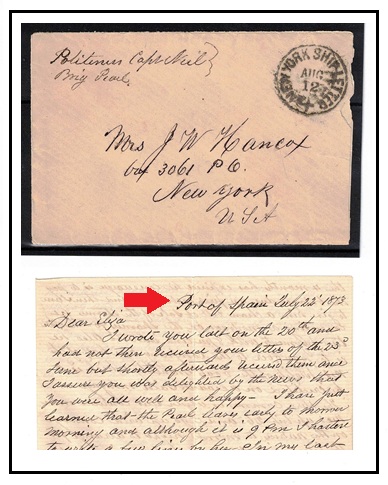 Politeness Capt Neil
Brig Pearl
NEW YORK SHIP LETTER
AUG
12
Mrs J W Hancox
box 3061 P.O.
New York
USA
Port of Spain July 22d 1873
Dear Eliza
I wrote you last on the 20th and
had not then received your letters of the 23d
June but shortly afterwards received them and
I assure you I was delighted by the news that
you were all well and happy - I have just
learned that the Pearl leaves early to morrow
morning and although it is 9 P.m I hasten
to write a few lines by her. In my last